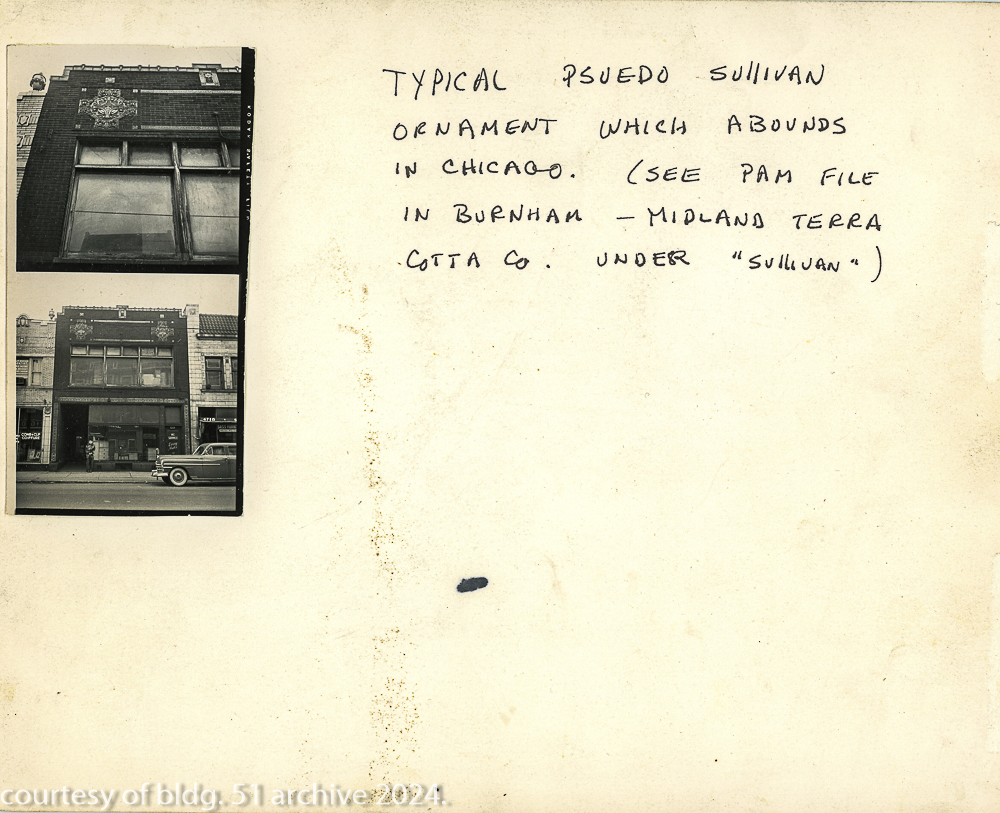 TYPICAL PSUEDO SULLIVAN
ORNAMENT WHICH ABOUNDS
IN CHICAGO. (SEE PAM FILE
IN BURNHAM – MIDLAND TERRA
COTTA CO. UNDER "SULLIVAN")
4718
courtesy of bldg. 51 archive 2024.